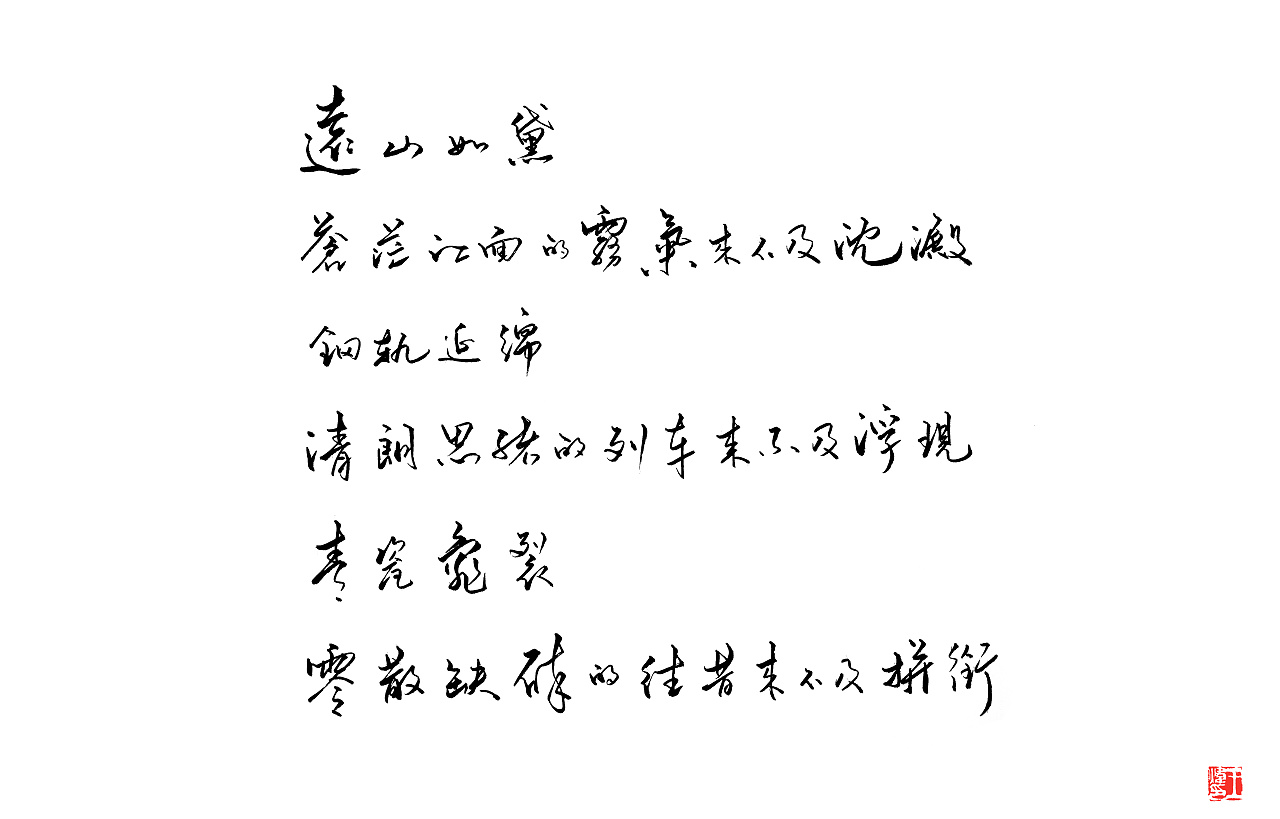 遠山如黛
蒼茫江面的霧氣来不及沈澱
鋼軌延綿
清朗思緒的列车来不及浮現
青瓷龜裂
零散缺碎的往昔来不及拼銜